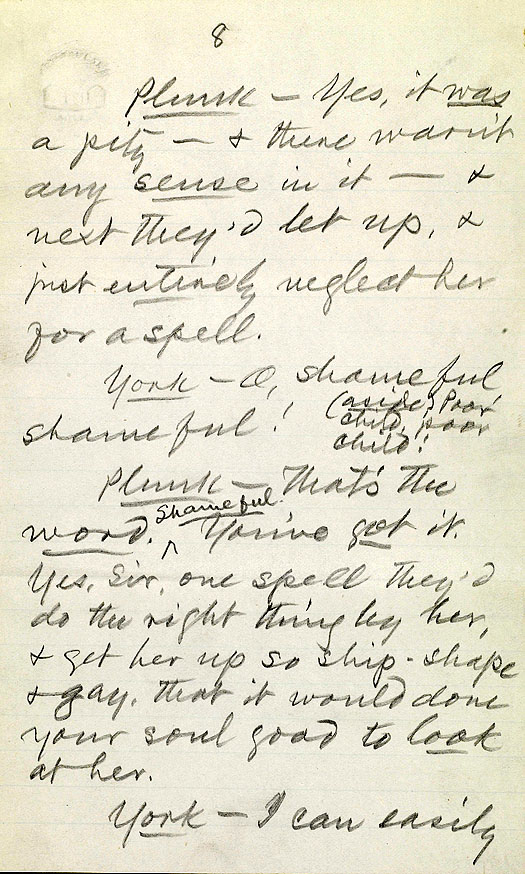 8
Plunk — Yes, it was
a pity — & there warn't
any sense in it — &
next they'd let up, &
just entirely neglect her
for a spell.
York — O, shameful
shameful! (aside) Poor
child, poor
child!
Plunk — That's the
word. Shameful. You've got it.
Yes, Sir, one spell they'd
do the right thing by her,
& get her up so ship-shape
& gay, that it would done
your soul good to look
at her.
York — I can easily